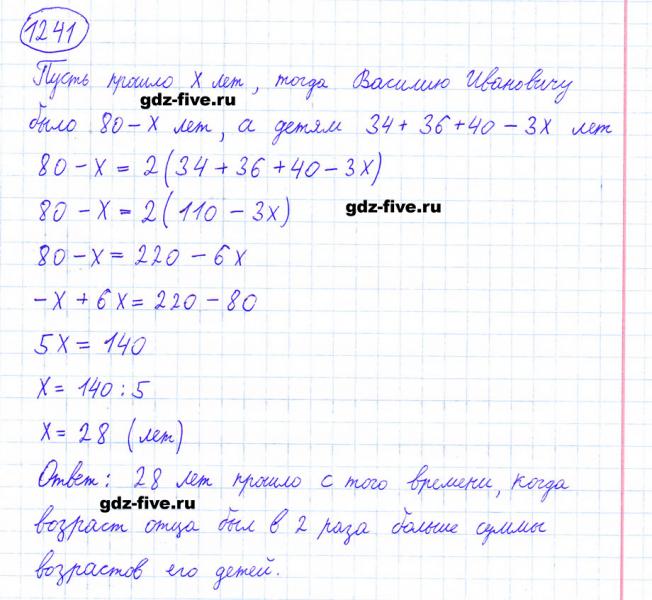 1241
Пусть прошло x лет, тогда Василию Ивановичу
gdz-five.ru
было 80 - x лет, а детям 34 + 36 + 40 - 3x лет
80 - x = 2(34 + 36 + 40 - 3x)
80 - x = 2(110 - 3x)
gdz-five.ru
80 - x = 220 - 6x
-x + 6x = 220 - 80
5x = 140
x = 140 : 5
x = 28 (лет)
Ответ: 28 лет прошло с того времени, когда
gdz-five.ru
возраст отца был в 2 раза больше суммы
возрастов его детей.